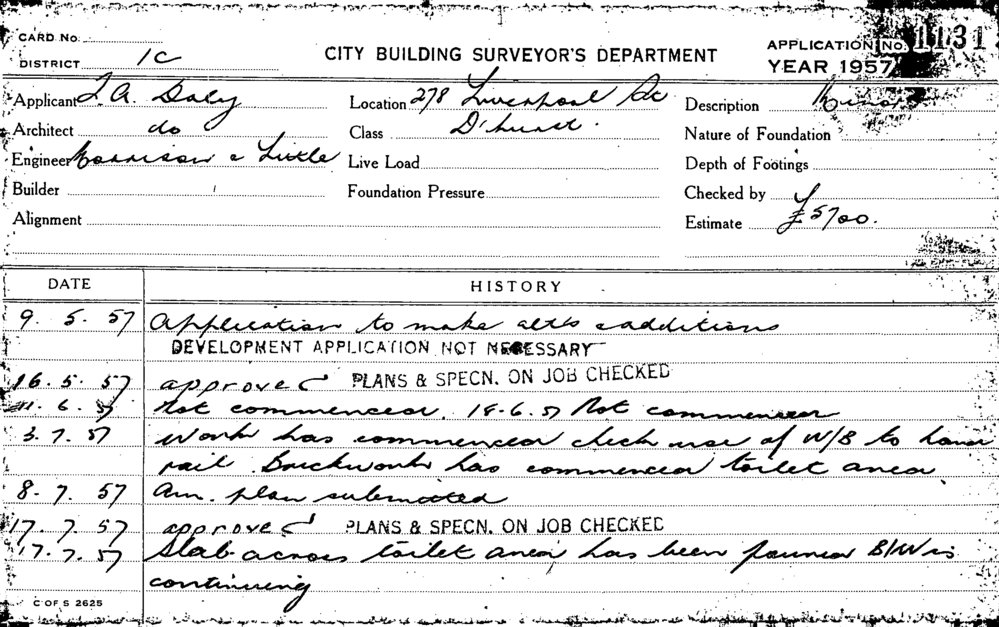 CARD No.
DISTRICT 1C
CITY BUILDING SURVEYOR'S DEPARTMENT
APPLICATION No. 1131
YEAR 1957
Applicant A. Daly
Location 278 Liverpool
Description
Architect do
Class D'hurst.
Nature of Foundation
Engineer Morrison & Little
Live Load
Depth of Footings
Builder
Foundation Pressure
Checked by
Alignment
Estimate £5700.
DATE
HISTORY
9. 5. 57 Application to make alts & additions
DEVELOPMENT APPLICATION NOT NECESSARY
16. 5. 57 approved PLANS & SPECN. ON JOB CHECKED
11. 6. 57 Not commenced. 18.6.57 Not commenced
3. 7. 57 Work has commenced check use of W/B to hand
rail. Brickwork has commenced toilet area
8. 7. 57 Am. plan submitted
17. 7. 57 approved PLANS & SPECN. ON JOB CHECKED
17. 7. 57 Slab across toilet area has been poured B/W is
continuing
C OF S 2625